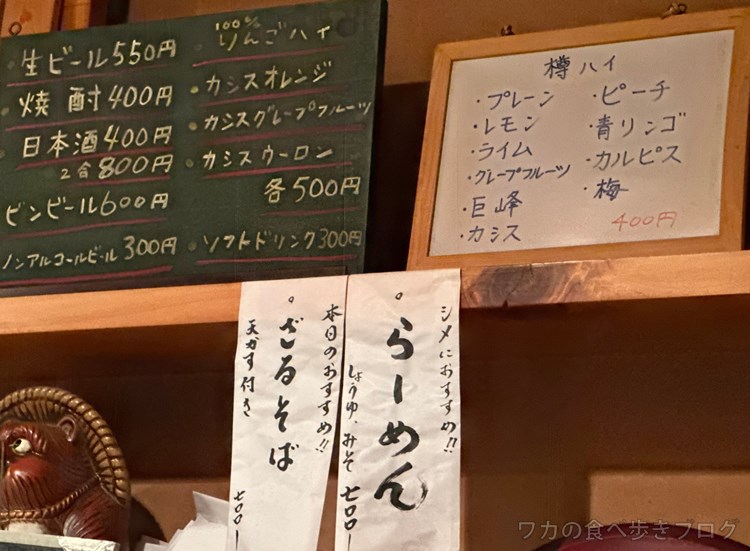 ・生ビール550円
・焼酎400円
・日本酒400円
2合800円
ビンビール600円
ノンアルコールビール300円
・100%りんごハイ
・カシスオレンジ
・カシスグレープフルーツ
・カシスウーロン
各500円
・ソフトドリンク300円
樽ハイ
・プレーン
・レモン
・ライム
・グレープフルーツ
・巨峰
・カシス
・ピーチ
・青リンゴ
・カルピス
・梅
400円
シメにおすすめ!!
。らーめん
しょうゆ、みそ 七〇〇ー
本日のおすすめ!!
。ざるそば
天かす付き 七〇〇ー
ワカの食べ歩きブログ